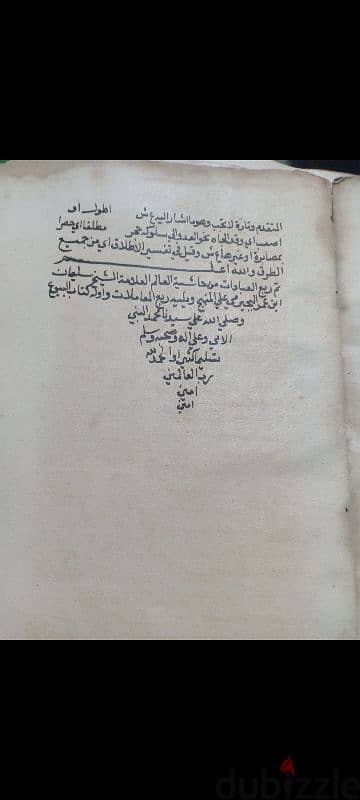 المتقدم وتارة لا تجب وهو ما اشار اليه ع ش اطول او
اصعب اي وقد الجاه نحو العدو الى سلوكه مطلقا اي حصرا
بمصابرة او غيرها ع ش وقيل في تفسير الاطلاق اي من جميع
الطرق والله اعلم
تم ربع العبادات من حاشية العالم العلامة الشيخ سليمان
ابن عمر البجيرمي على المنهج ويليه ربع المعاملات واوله كتاب البيوع
وصلى الله على سيدنا محمد النبي
الامي وعلى اله وصحبه وسلم
تسليما كثيرا والحمد لله
رب العالمين
امين
امين
dubizzle